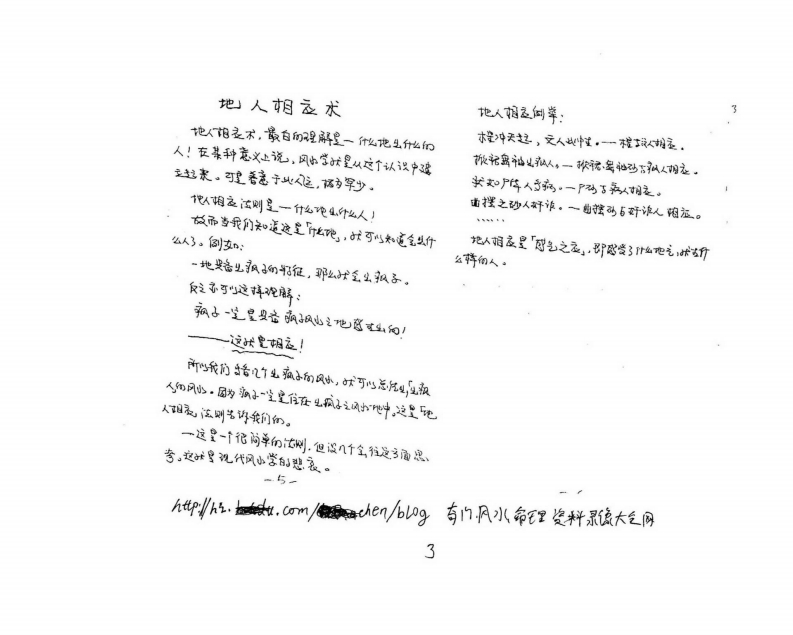 地人相应术
地人相应术，最白的理解是一什么地出什么的
人！在某种意义上说，风水学就是从这个认识中建
立起来。可是着意于此人这，少。
地人相应法则是一什么地出什么人！
故而当我们知道这是「什么地」，就可以知道会出什
么人了。例如：
一地具备出疯子的特征，那么就会出疯子。
反之亦可以这样理解：
疯子一定是具备疯子风水之地感应出的！
——这就是相应！
所以我们多看几个出疯子的风水，就可以总结出「出疯
人的风水。因为疯子一定是住在出疯子之风水地中。这是「地
人相应」法则告诉我们的。
一这是一个很简单的法则，但没几个会往这方面思
考。这就是现代风水学的悲哀。
-5-
地人相应例举：
冲天起，文人此中生。一相应。
掀裙舞袖出人。一掀裙舞袖砂与人相应。
一尸砂与病人相应。
曲摆之砂人奸诈。一曲摆砂与奸诈人相应。
……
地人相应是「感气之应」，即感受了什么地气，就有什
么样的人。
3
http://hi. .com/ chen/blog 奇门风水命理资料录像大全网
3